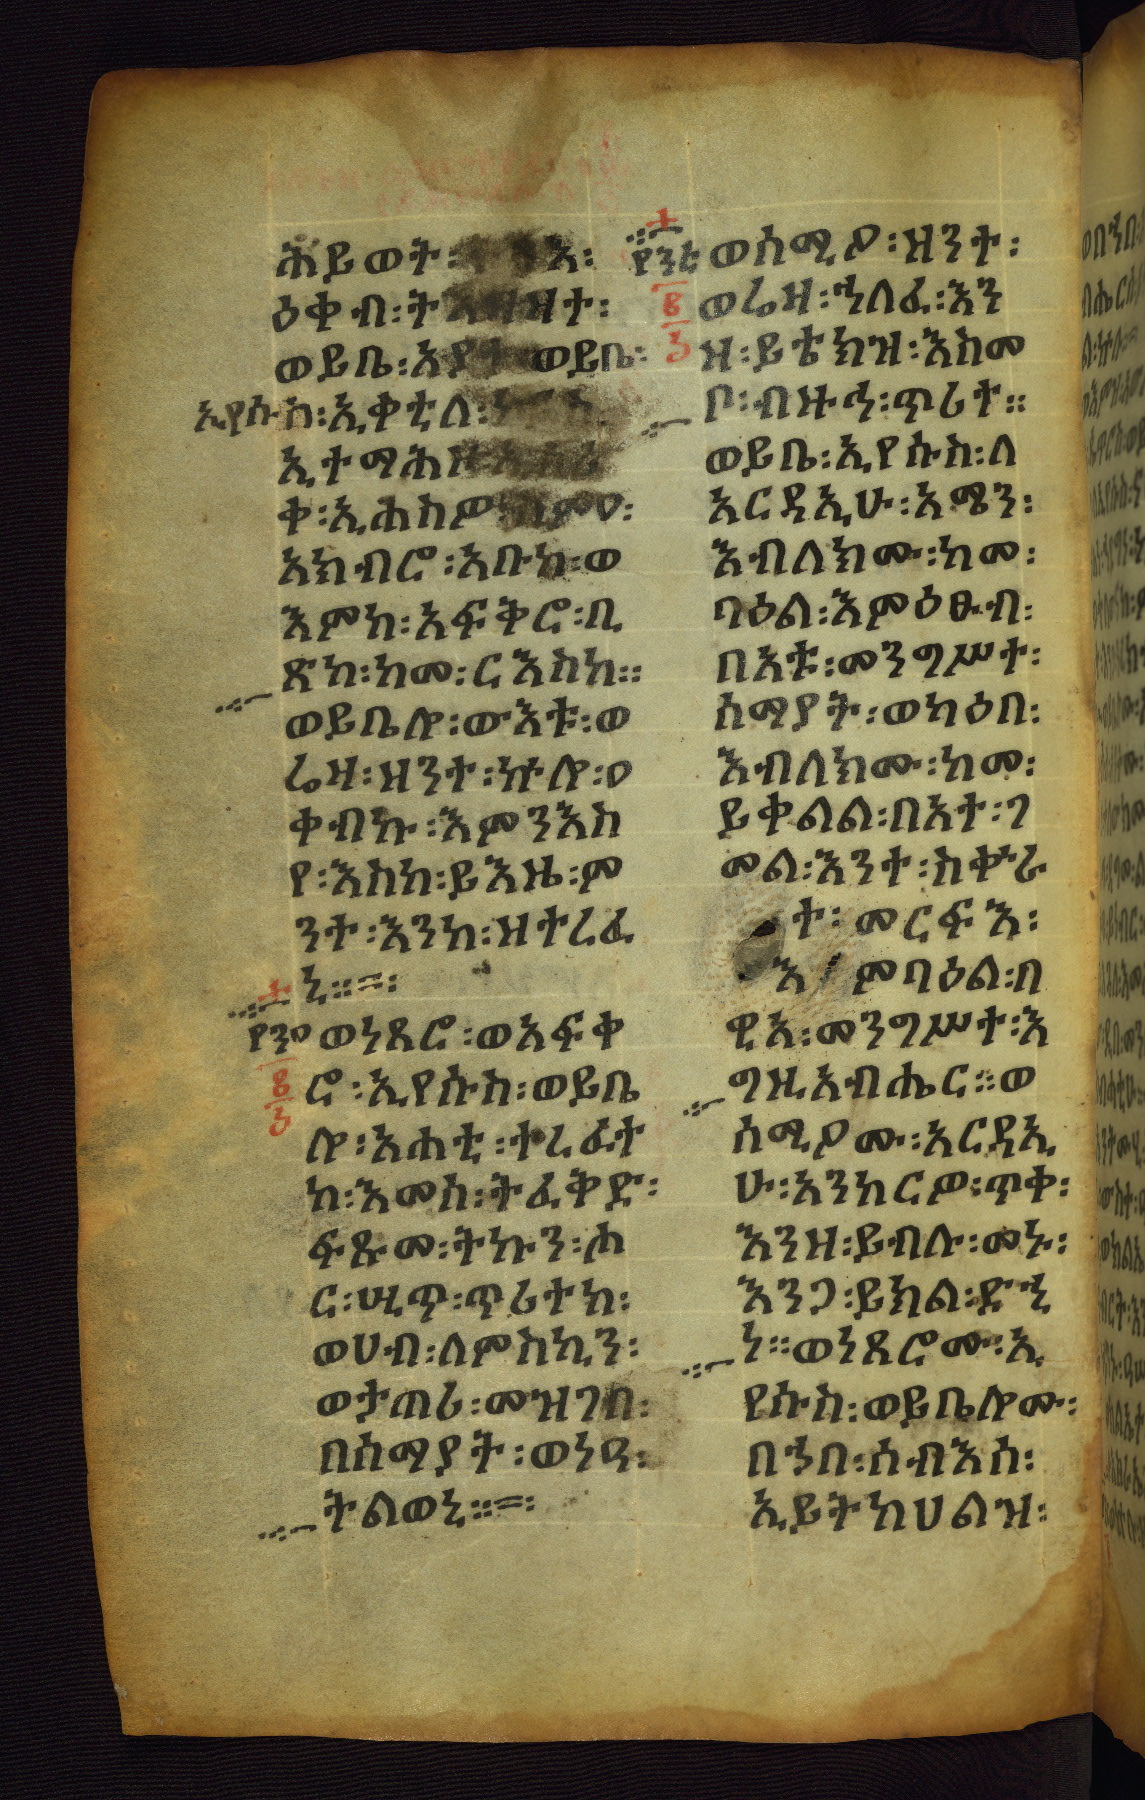 ሕይወት፡ እ፡
ዕቀብ፡ትእዛዛተ፡
ወይቤ፡አያተ ወይቤ፡
ኢየሱስ፡ኢቀቲለ፡
ኢተማሕ
ቀ፡ኢሐስዎ፡
አክብሮ፡አቡከ፡ወ
እምከ፡አፍቅሮ፡ቢ
ጽከ፡ከመ፡ርእስከ።
ወይቤሎ፡ውእቱ፡ወ
ሬዛ፡ዝንተ፡ኵሎ፡ዐ
ቀብኩ፡እምንእስ
የ፡እስከ፡ይእዜ፡ም
ንተ፡እንከ፡ዝተረፈ
ኒ።=፡
የ፶፡ ወነጸሮ፡ወአፍቀ
ሮ፡ኢየሱስ፡ወይቤ
ሎ፡አሐቲ፡ተረፈተ
ከ፡እመሰ፡ትፈቅድ፡
ፍጹመ፡ትኩን፡ሖ
ር፡ሢጥ፡ጥሪተከ፡
ወሀብ፡ለምስኪን፡
ወታጠሪ፡መዝገበ፡
በሰማያት፡ወነዓ፡
ትልወኒ።=፡
ወሰሚዖ፡ዝንተ፡
ወሬዛ፡ኀለፈ፡እን
ዝ፡ይቴክዝ፡እስመ
ቦ፡ብዙኀ፡ጥሪተ።
ወይቤ፡ኢየሱስ፡ለ
አርዳኢሁ፡አሜን፡
እብለክሙ፡ከመ፡
ባዕል፡እምዕፁብ፡
በአቱ፡መንግሥተ፡
ሰማያት፡ወካዕበ፡
እብለክሙ፡ከመ፡
ይቀልል፡በአተ፡ገ
መል፡እንተ፡ስቍረ
ተ፡ መርፍእ፡
እ ምባዕል፡በ
ዊአ፡መንግሥተ፡እ
ግዚአብሔር።ወ
ሰሚዖሙ፡አርዳኢ
ሁ፡አንከርዎ፡ጥቀ፡
እንዘ፡ይብሉ፡መኑ፡
እንጋ፡ይክል፡ድኂ
ነ።ወነጸሮሙ፡ኢ
የሱስ፡ወይቤሎሙ፡
በኀበ፡ሰብእሰ፡
ኢይትከሀልዝ፡